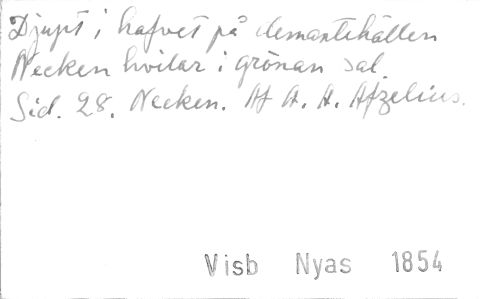 Djupt i hafvet på demantehällen
Necken hvilar i grönan sal.
Sid. 28. Necken. Af A. A. Afzelius.
Visb Nyas 1854